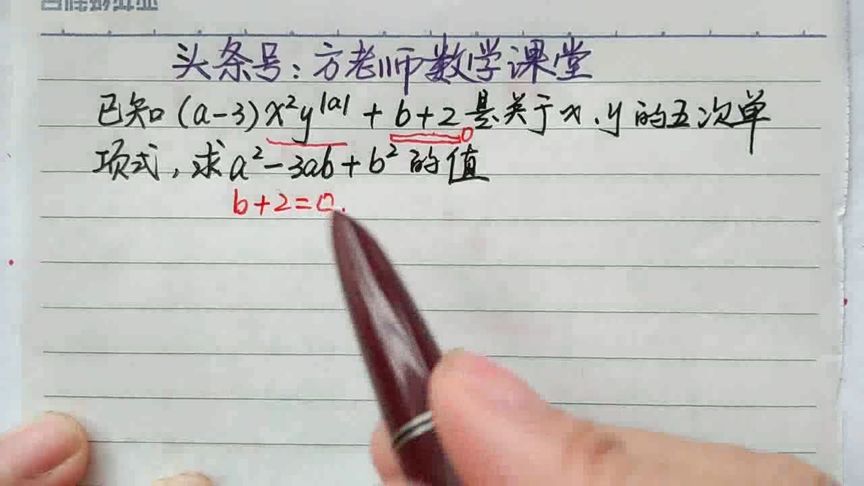 头条号：方老师数学课堂
已知(a-3)x²y^|a|+b+2是关于x、y的五次单
项式，求a²-3ab+b²的值
b+2=0.